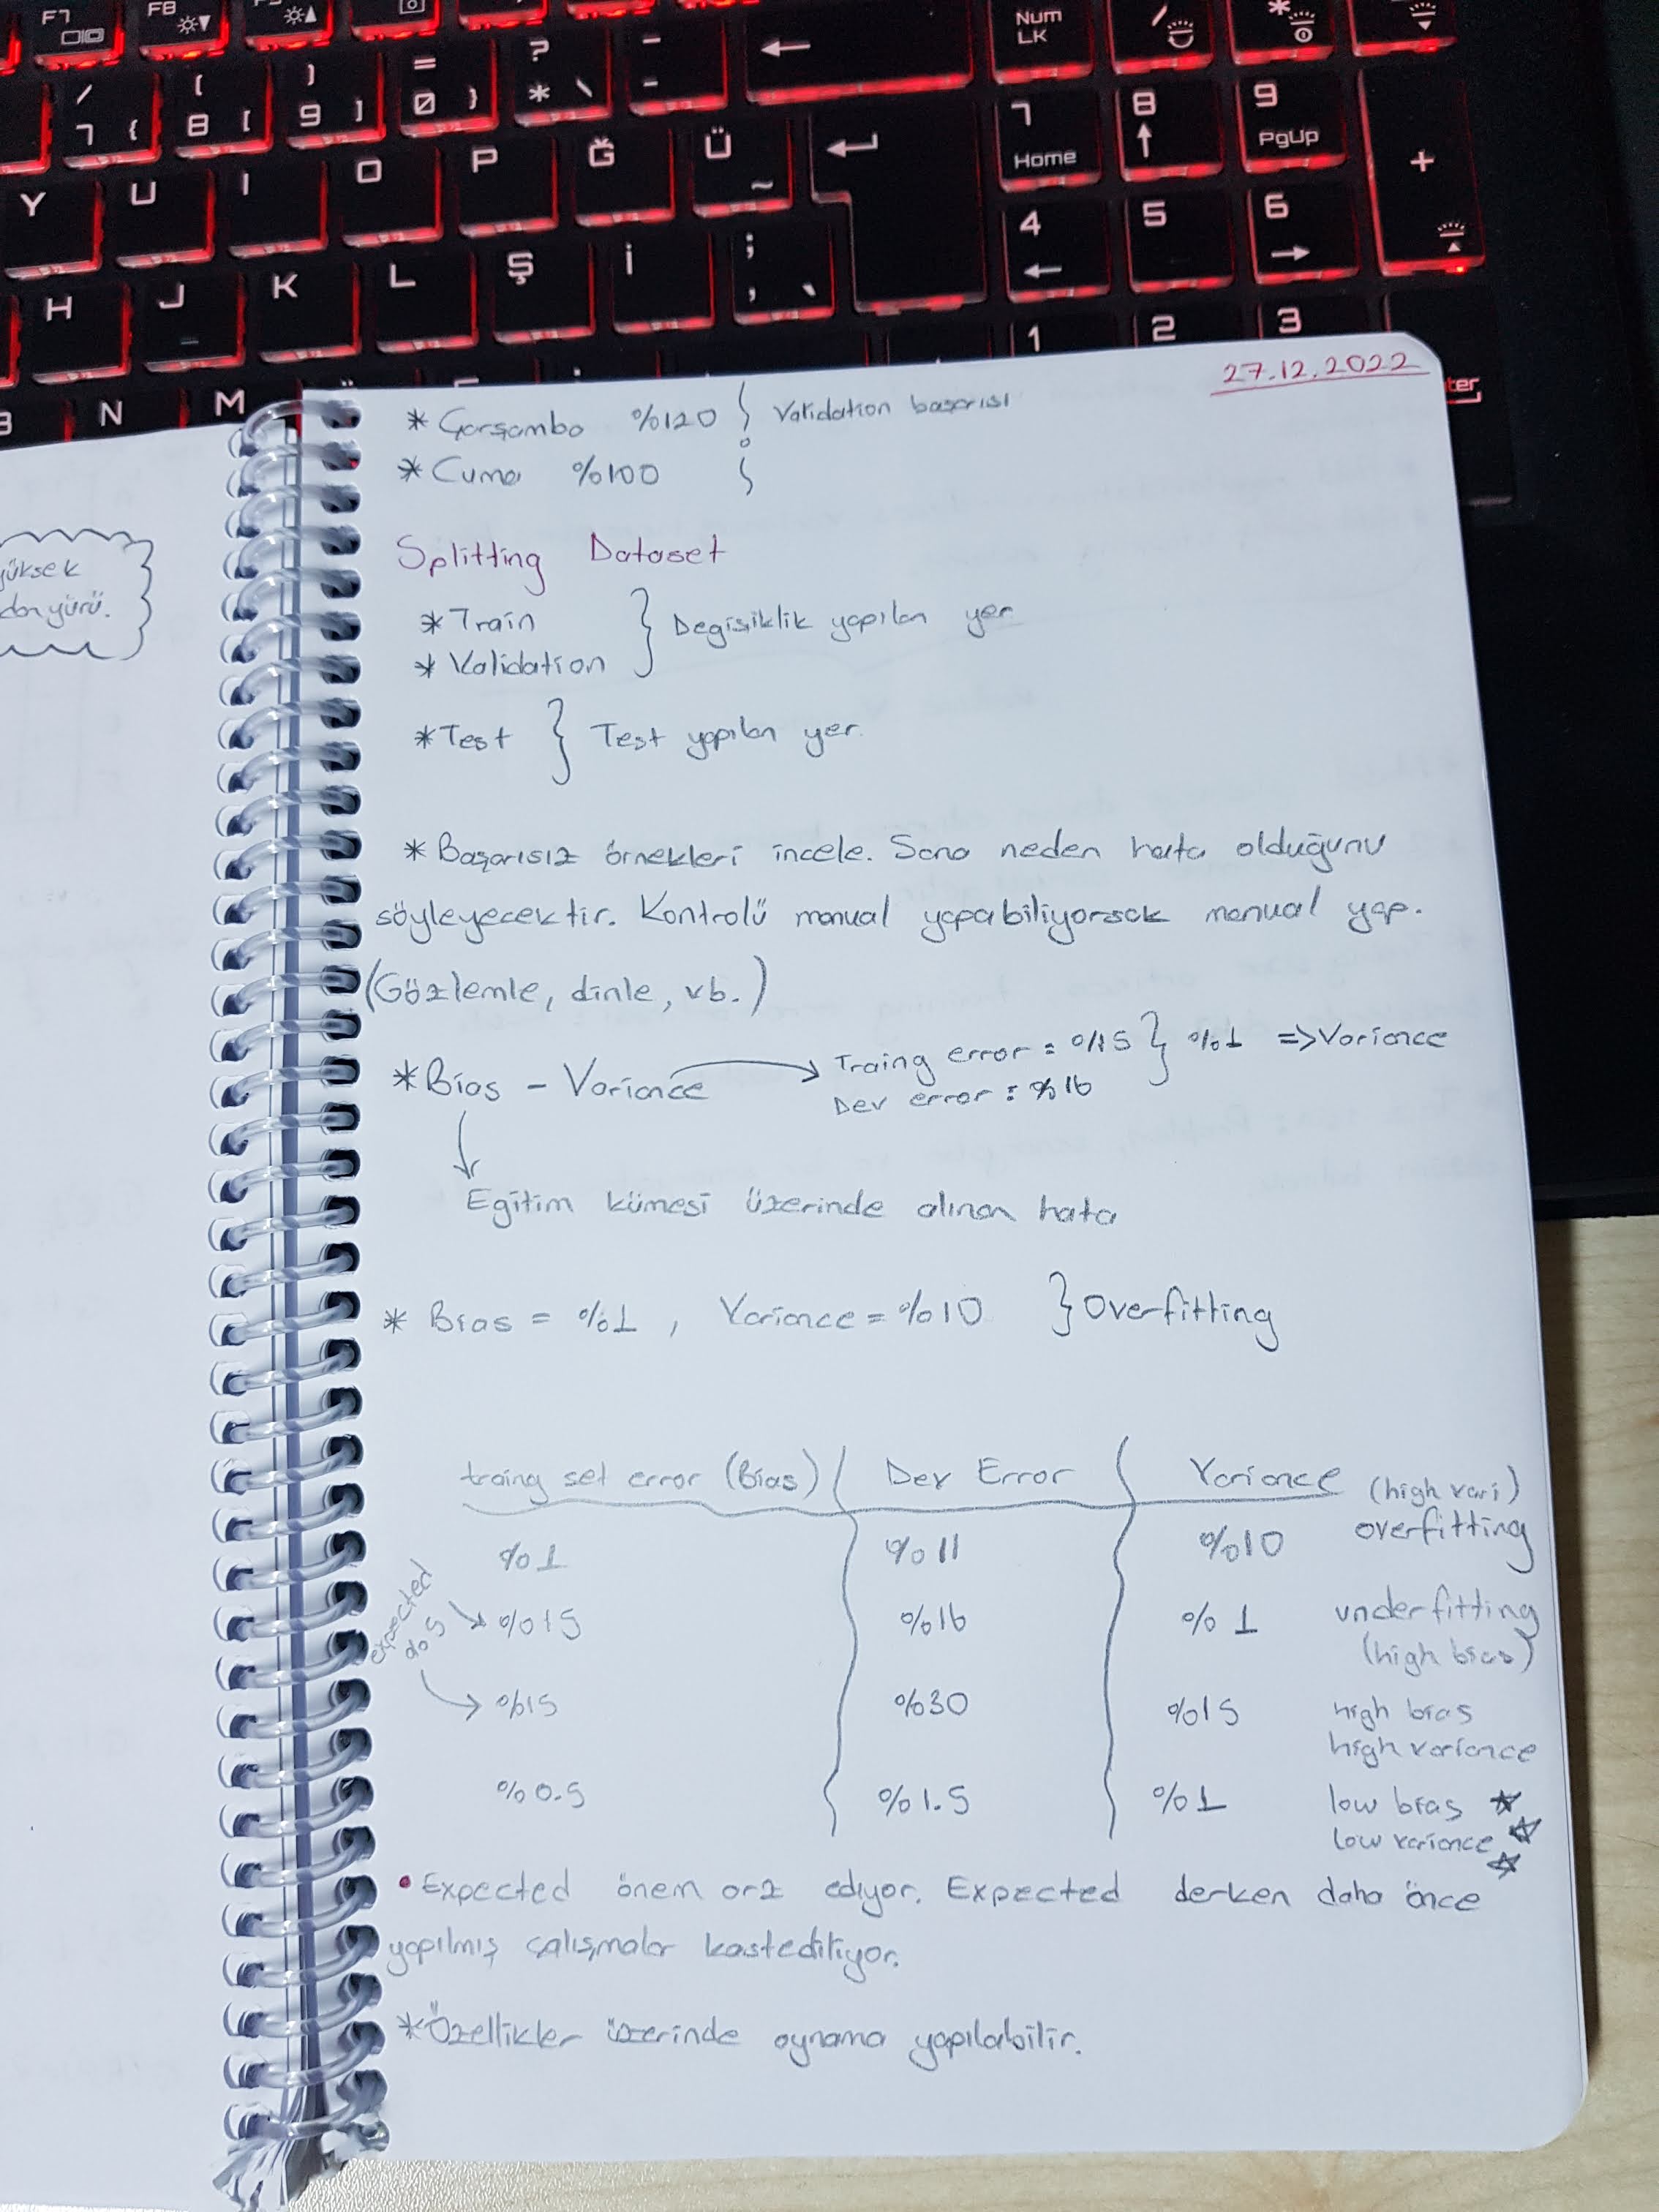 F7
F8
/ 7 {
( 8 [
) 9 ]
= 0 }
? * \
_ -
Num LK
7 Home
8
9 PgUp
+
Y
U
I
O
P
Ğ
Ü ~
4
5
6
H
J
K
L
Ş
İ
; , `
1
2
3
B
N
M
ter
yüksek
dan yürü.
27.12.2022
* Çarşamba %120 } Validation başarısı
* Cuma %100
Splitting Dataset
* Train } Degisiklik yapılan yer
* Validation
* Test } Test yapılan yer.
* Başarısız örnekleri incele. Sana neden hata olduğunu
söyleyecektir. Kontrolü manual yapabiliyorsak manual yap.
(Gözlemle, dinle, vb.)
* Bias - Variance → Traing error = %15 } %1 => Variance
Dev error = %16
Egitim kümesi üzerinde alınan hata
* Bias = %1 , Variance = %10 } Overfitting
traing set error (Bias) Dev Error Variance (high vari)
%1 %11 %10 overfitting
expected %5
%15 %16 %1 underfitting
(high bias)
%15 %30 %15 high bias
high variance
%0.5 %1.5 %1 low bias
low variance
• Expected önem arz ediyor. Expected derken daha önce
yapılmış çalışmalar kastediliyor.
* Özellikler üzerinde oynama yapılabilir.